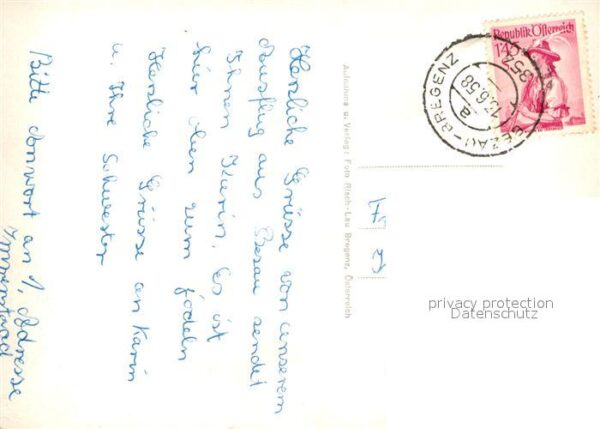 Herzliche Grüsse von unserem
Ausflug aus Bezau sendet
Ihnen Karin. Es ist
hier oben zum jodeln
Herzliche Grüsse an Karin
u. Ihre Schwester
Bitte Antwort an 1, Adresse
Immenstaad
Aufnahme u. Verlag: Foto Risch-Lau Bregenz, Österreich
Republik Österreich
BEZAU-BREGENZ
13.6.58
a
privacy protection
Datenschutz